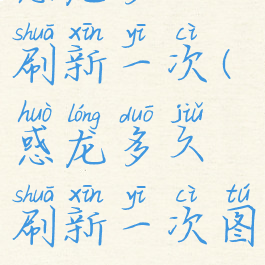 shuā xīn yī cì
刷新一次(
huò lóng duō jiǔ
惑龙多久
shuā xīn yī cì tú
刷新一次图